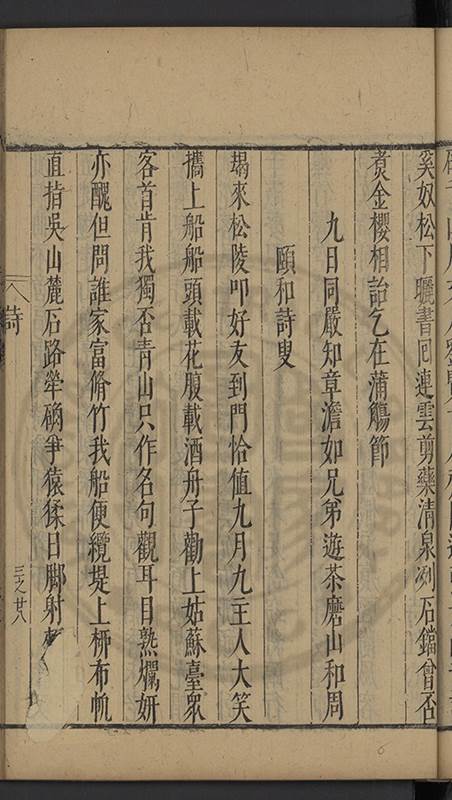 奚奴松下曬書回連雲剪藥清泉冽石鐺曾否
煑金櫻相詒乞在蒲觴節
九日同嚴知章澹如兄弟遊茶磨山和周
頤和詩叟
朅來松陵叩好友到門恰值九月九主人大笑
攜上船船頭載花腹載酒舟子勸上姑蘇臺眾
客首肯我獨否青山只作名句觀耳目熟爛妍
亦醜但問誰家富脩竹我船便纜堤上栁布帆
直指吳山麓石路犖确爭猿猱日腳射
詩
三之廿八